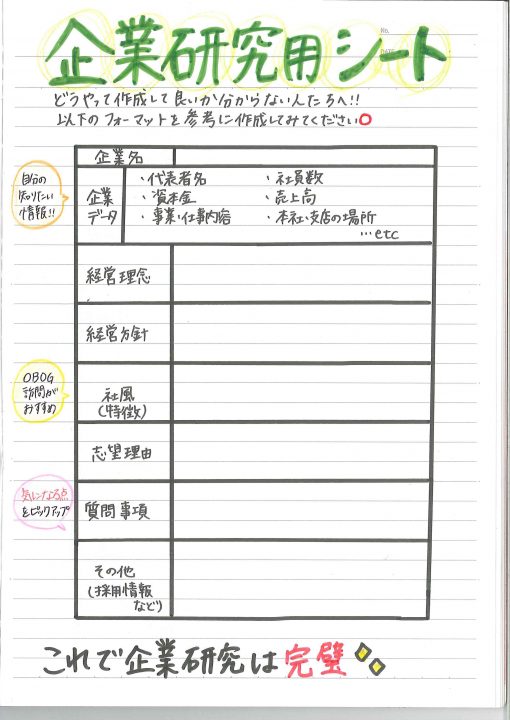 企業研究用シート
No.
DATE
どうやって作成して良いか分からない人たちへ!!
以下のフォーマットを参考に作成してみてください○
企業名
自分の
知りたい
情報!!
企業
データ
・代表者名
・社員数
・資本金
・売上高
・事業・仕事内容
・本社・支店の場所
…etc
経営理念
経営方針
OBOG
訪問が
おすすめ
社風
(特徴)
志望理由
気になる点
をピックアップ
質問事項
その他
(採用情報
など)
これで企業研究は完璧